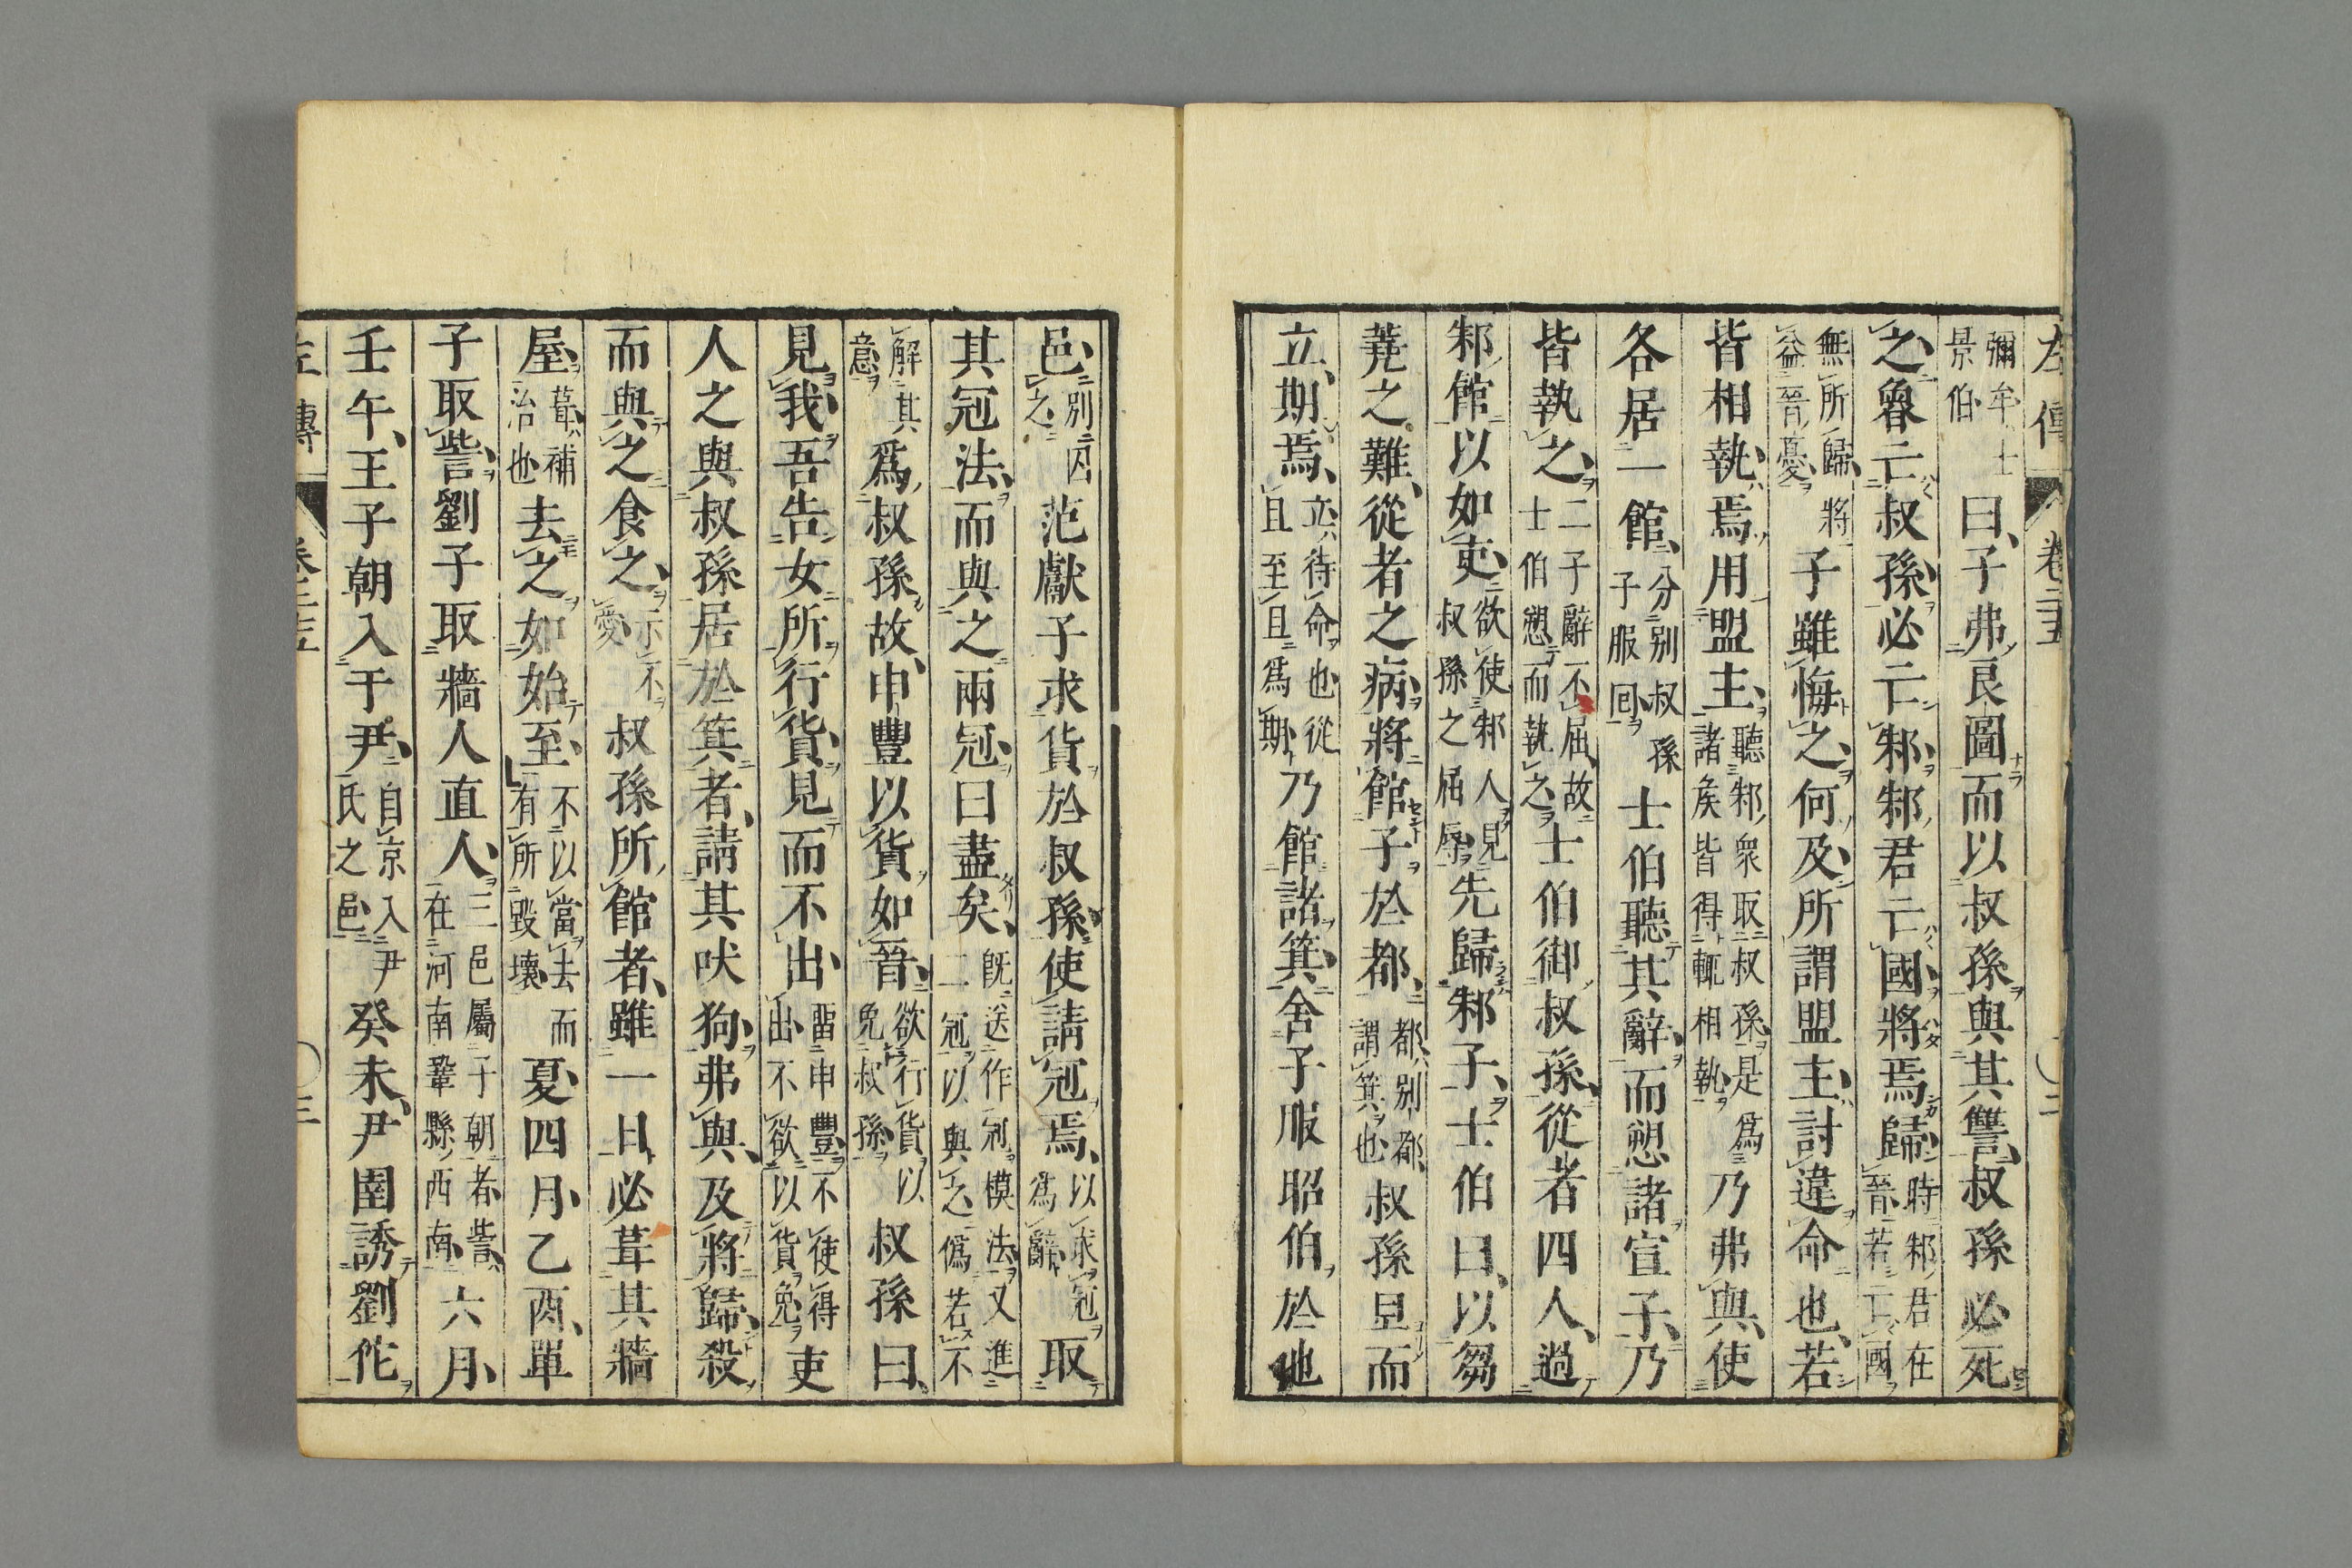 左傳 卷二十五 二
彌牟士景伯曰、子弗良圖而以叔孫與其讐、叔孫必死
之、魯亡叔孫、必亡邾、邾君亡國、將焉歸時邾君在晉若亡國
無所歸將益晉憂子雖悔之、何及、所謂盟主、討違命也、若
皆相執、焉用盟主、聽邾衆取叔孫是爲諸侯皆得輒相執乃弗與、使
各居一館、分別叔孫子服回士伯聽其辭、而愬諸宣子、乃
皆執之、二子辭不屈故士伯愬而執之士伯御叔孫、從者四人、過
邾館以如吏、欲使邾人見叔孫之屈辱先歸邾子、士伯曰、以芻
蕘之難、從者之病、將館子於都、都別都謂箕也叔孫旦而
立、期焉、立待命也從旦至旦爲期乃館諸箕、舍子服昭伯於他
邑、別囚之范獻子求貨於叔孫、使請冠焉、以求冠爲辭取
其冠法、而與之兩冠、曰盡矣、旣送作冠模法又進二冠以與之僞若不
解其意爲叔孫故、申豐以貨如晉、欲行貨以免叔孫叔孫曰、
見我、吾告女所行貨、見而不出、留申豐不使得出不欲以貨免吏
人之與叔孫居於箕者、請其吠狗、弗與、及將歸、殺
而與之食之、示不愛叔孫所館者、雖一日、必葺其牆
屋、葺補治也去之如始至、不以當去而有所毀壞夏四月乙酉、單
子取訾、劉子取牆人直人、三邑屬子朝者訾在河南鞏縣西南六月、
壬午、王子朝入于尹、自京入尹氏之邑癸未、尹圉誘劉佗
左傳 卷二十五 三